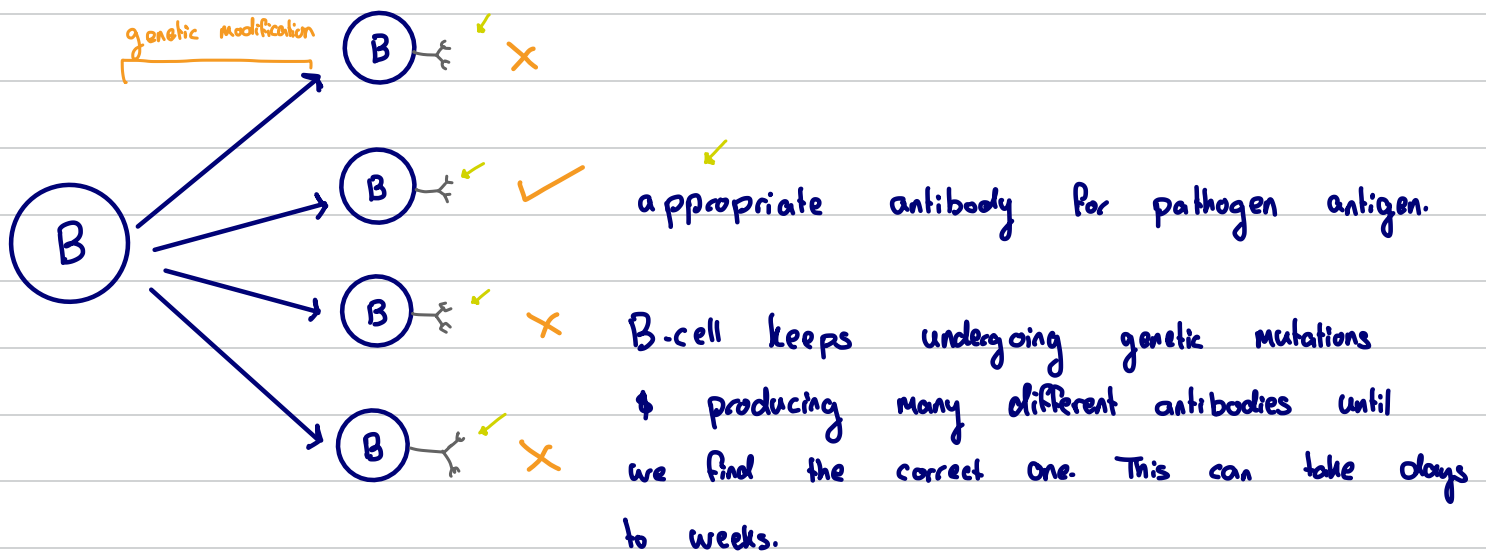 genetic modification
B
B
B
appropriate antibody for pathogen antigen.
B
B
B-cell keeps undergoing genetic mutations
& producing many different antibodies until
we find the correct one. This can take days
to weeks.